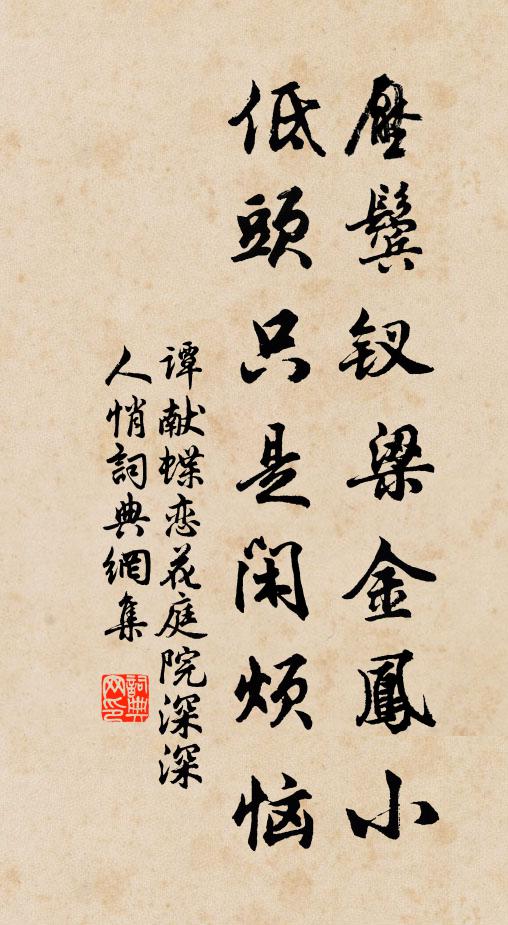 压鬓钗梁金鳳小
低頭只是闲烦恼
谭献蝶恋花庭院深深
人悄詞典網集
詞典
网印